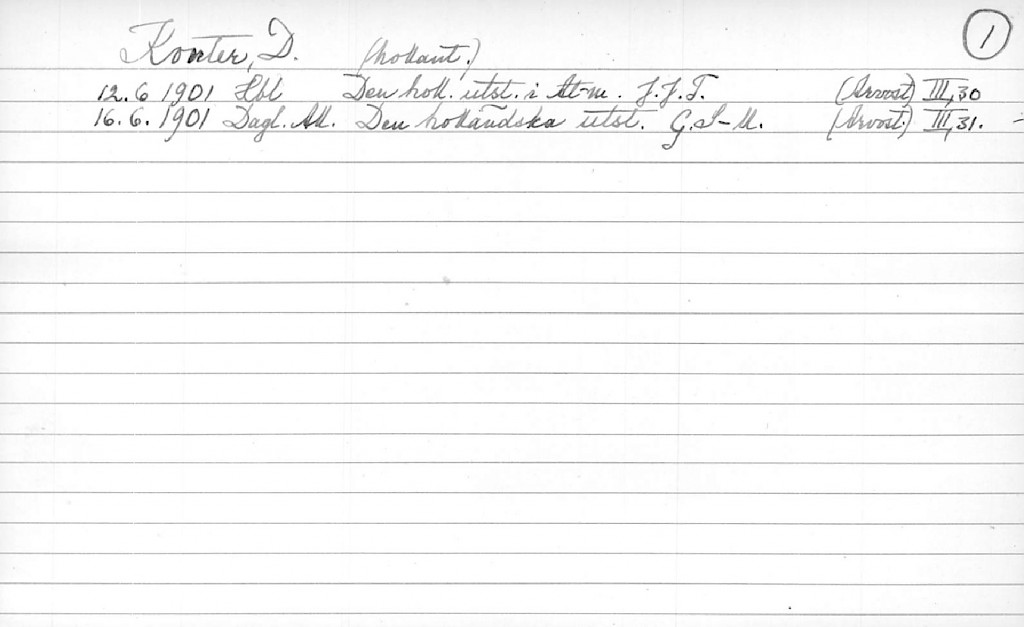 Konter, D. (hollant.) 1
12.6 1901 Hbl Den holl. utst. i At-m. J.J.T. (Arvost) III, 30
16.6.1901 Dagl. All. Den holländska utst. G.S-ll. (Arvost.) III, 31.